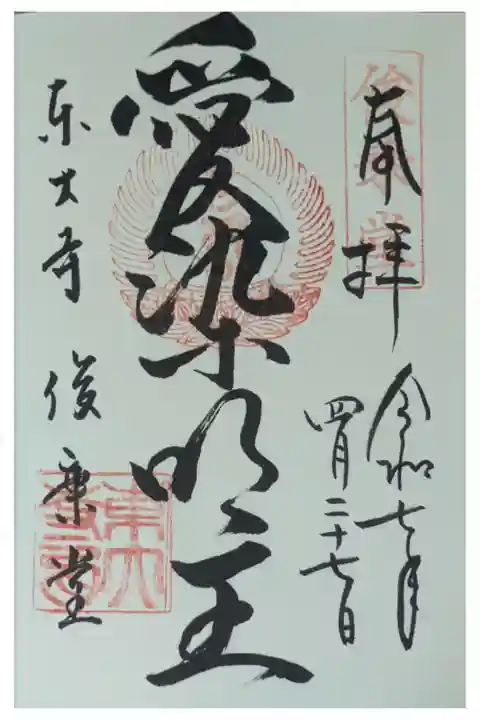 奉拝
令和七年
四月二十七日
愛染明王
東大寺 俊乗堂
俊乗堂